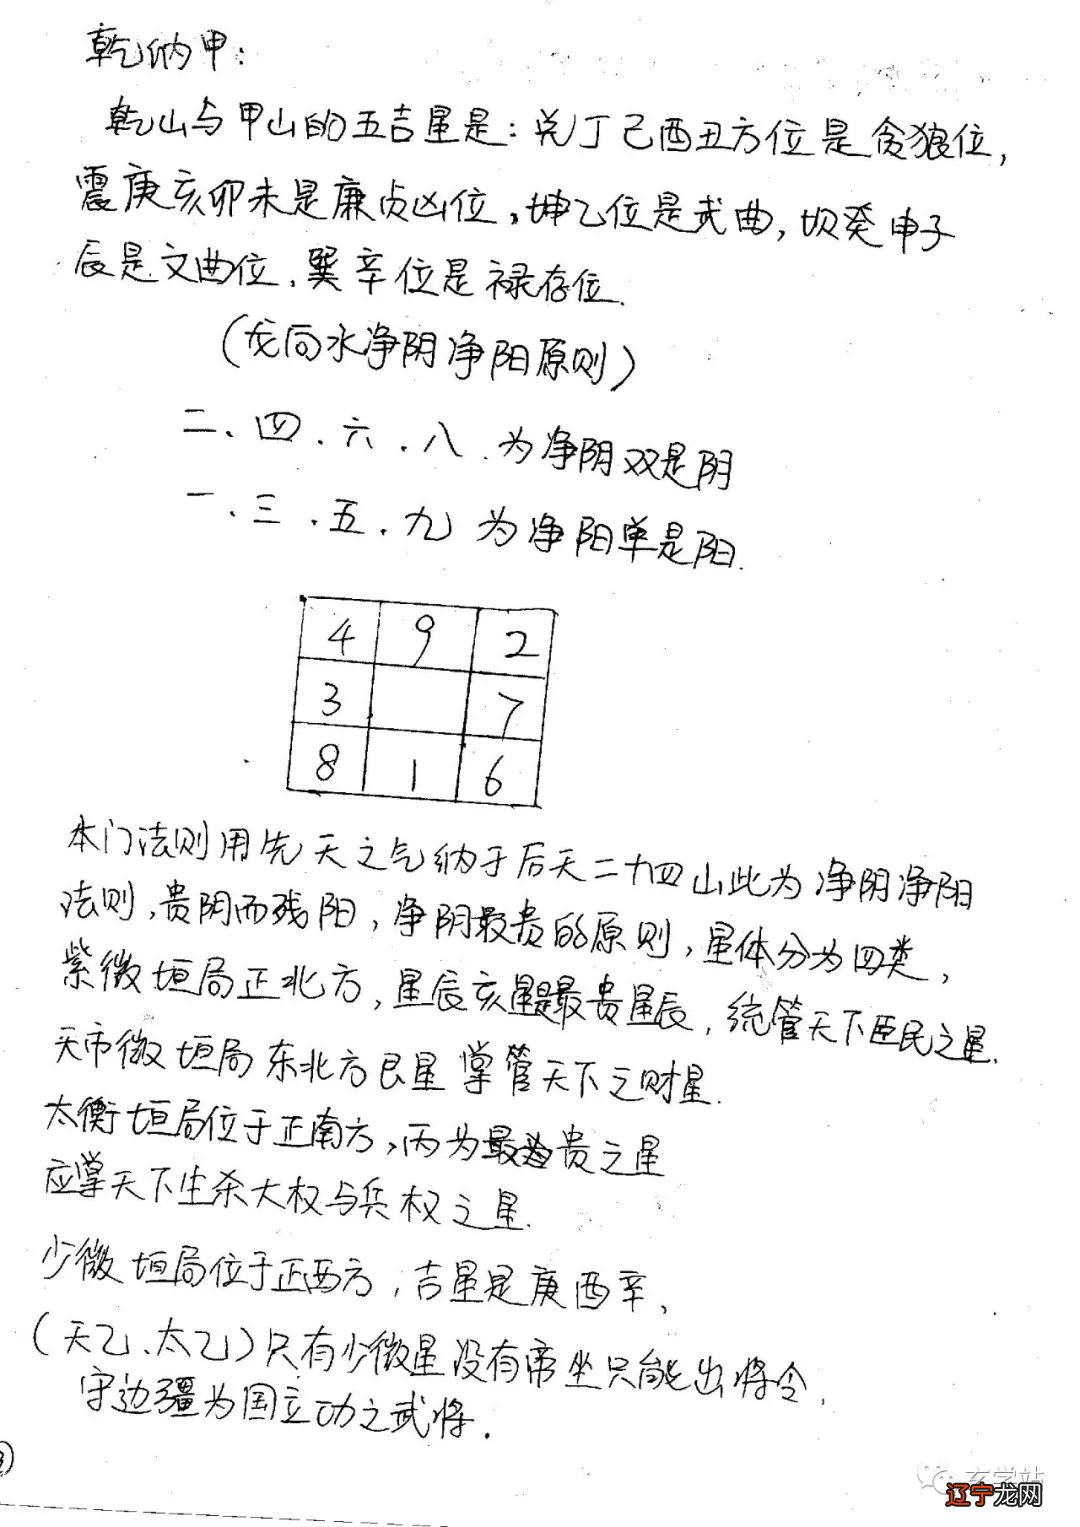 乾纳甲:
乾山与甲山的五吉星是:兑丁己酉丑方位是贪狼位,
震庚亥卯未是廉贞凶位,坤乙位是武曲,坎癸申子
辰是文曲位.巽辛位是禄存位.
(龙向水净阴净阳原则)
二、四.六.八.为净阴双是阴
一.三.五.九为净阳单是阳.
4 9 2
3 7
8 1 6
本门法则用先天之气纳于后天二十四山此为净阴净阳
法则,贵阴而残阳,净阴最贵的原则,星体分为四类,
紫微垣局正北方,星辰亥星是最贵星辰,统管天下臣民之星.
天市微垣局东北方艮星掌管天下之财星.
太衡垣局位于正南方,丙为最为贵之星
应掌天下生杀大权与兵权之星.
少微垣局位于正西方,吉星是庚酉辛、
(天乙、太乙)只有少微星没有帝坐只能出将令.
守边疆为国立功之武将.
玄学站
辽宁龙网